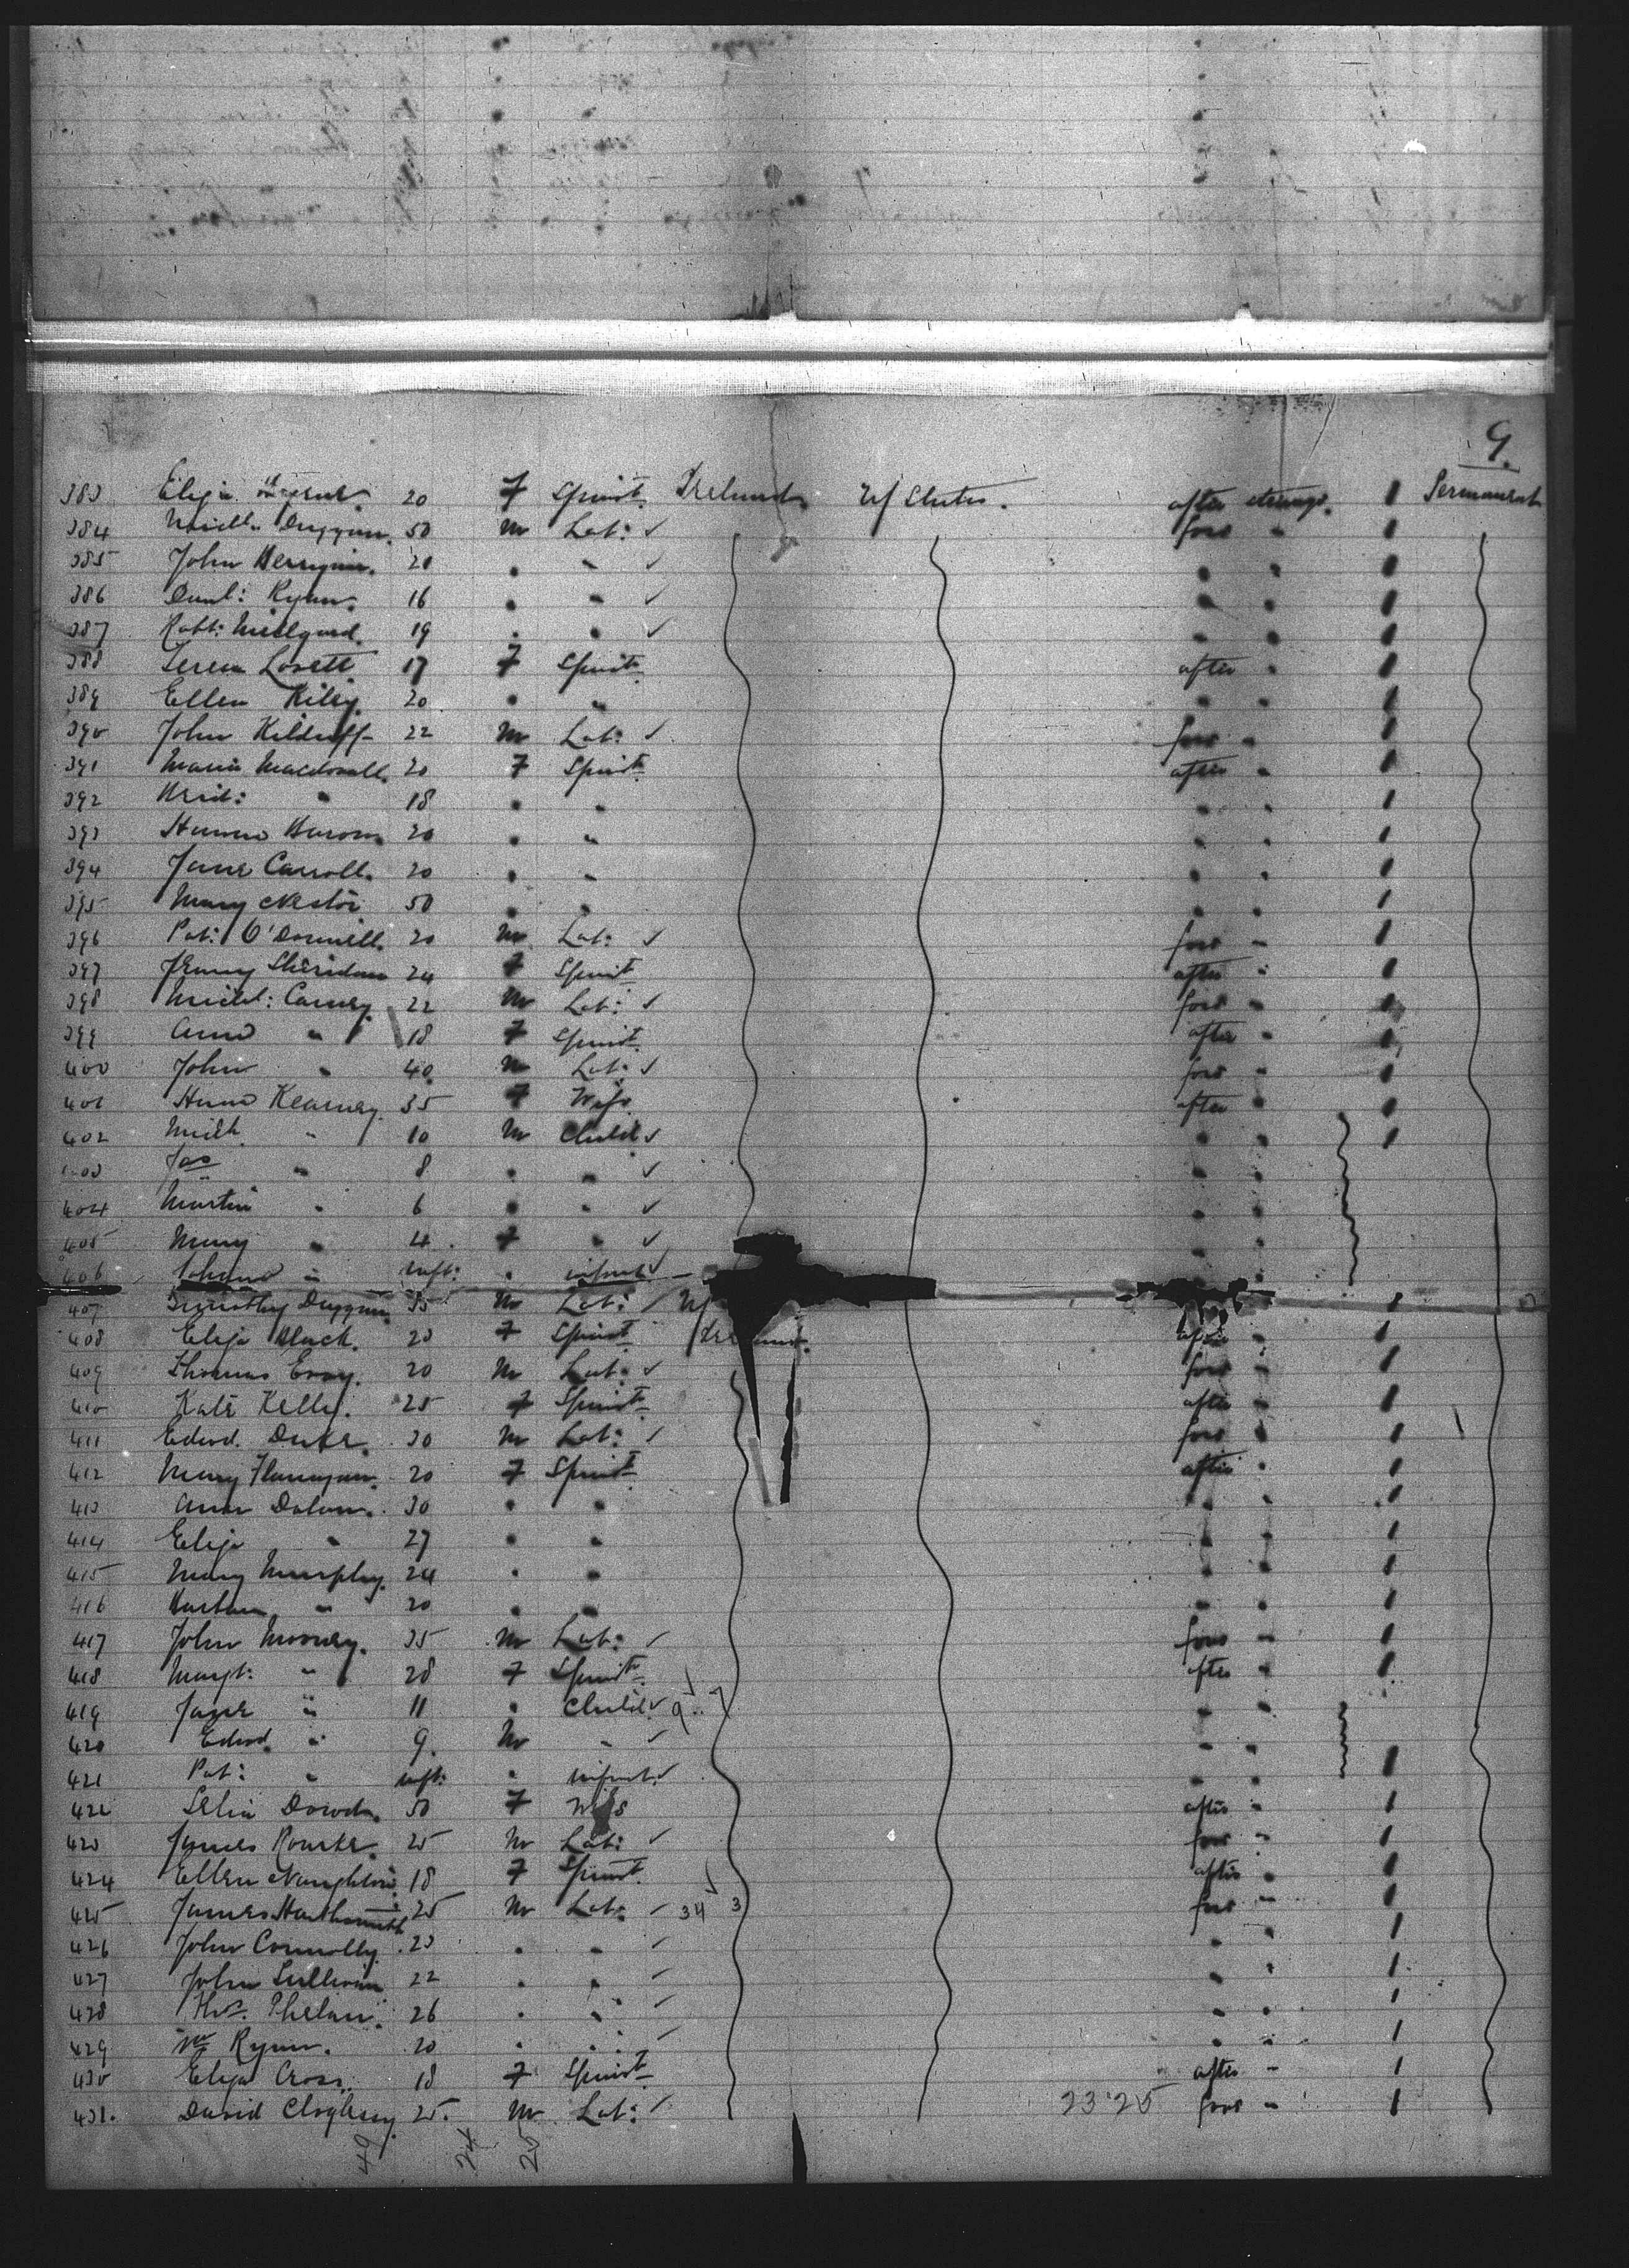 9.
383 Eliza 20 F Spinst. Ireland U/States. after steerage. 1 Permanent
384 Duggan. 50 M Lab: ✓ fore " 1
385 John 20 " " ✓ " " 1
386 Danl: Ryan. 16 " " ✓ " " 1
387 Robt: 19 " " ✓ " " 1
388 Lovett. 17 F Spinst. after " 1
389 Ellen Kiley. 20 " " " " 1
390 John Kilduff 22 M Lab: ✓ fore " 1
391 Maria 20 F Spinst. after " 1
392 " 18 " " " " 1
393 20 " " " " 1
394 Jane Carroll. 20 " " " " 1
395 Mary Nestor 50 " " " " 1
396 Pat: O'Donnell. 20 M Lab: ✓ fore " 1
397 Sheridan 24 F Spinst. after " 1
398 Michl: Carney. 22 M Lab: ✓ fore " 1
399 Anne " 18 F Spinst. after " 1
400 John " 40 M Lab: ✓ fore " 1
401 Kearney. 35 F Wife after " 1
402 Michl. " 10 M Child ✓ " " 1
403 Jas " 8 " " ✓ " "
404 Martin " 6 " " ✓ " "
405 Mary " 4 F " ✓ " "
406 " inft: " infant ✓
407 Timothy Duggan 35 M Lab: ✓ 1
408 Eliza Black. 20 F Spinst. Ireland. after " 1
409 Thomas 20 M Lab: ✓ fore " 1
410 Kate Kelly. 25 F Spinst. after " 1
411 Edwd. Duke. 30 M Lab: ✓ fore " 1
412 Mary Flanagan. 20 F Spinst. after " 1
413 Anne Dolan. 30 " " " " 1
414 Eliza " 27 " " " " 1
415 Mary Murphy. 24 " " " " 1
416 " 20 " " " " 1
417 John Mooney. 35 M Lab: ✓ fore " 1
418 Margt: " 28 F Spinst. after " 1
419 " 11 " Child ✓ " "
420 Edwd. " 9. M " ✓ " " 1
421 Pat: " inft: " infant. ✓ " "
422 Dowd. 50 F Wife after " 1
423 James Rourke. 25 M Lab: ✓ fore " 1
424 Ellen Naughton. 18 F Spinst. after " 1
425 James 25 M Lab: ✓ 34 3 fore " 1
426 John Connolly. 23 " " ✓ " " 1
427 John Sullivan 22 " " ✓ " " 1
428 Thos. Phelan. 26 " " ✓ " " 1
429 Wm Ryan. 20 " " ✓ " " 1
430 Eliza Cross. 18 F Spinst. after " 1
431. David 25. M Lab: ✓ 23.25 fore " 1
49 24 25